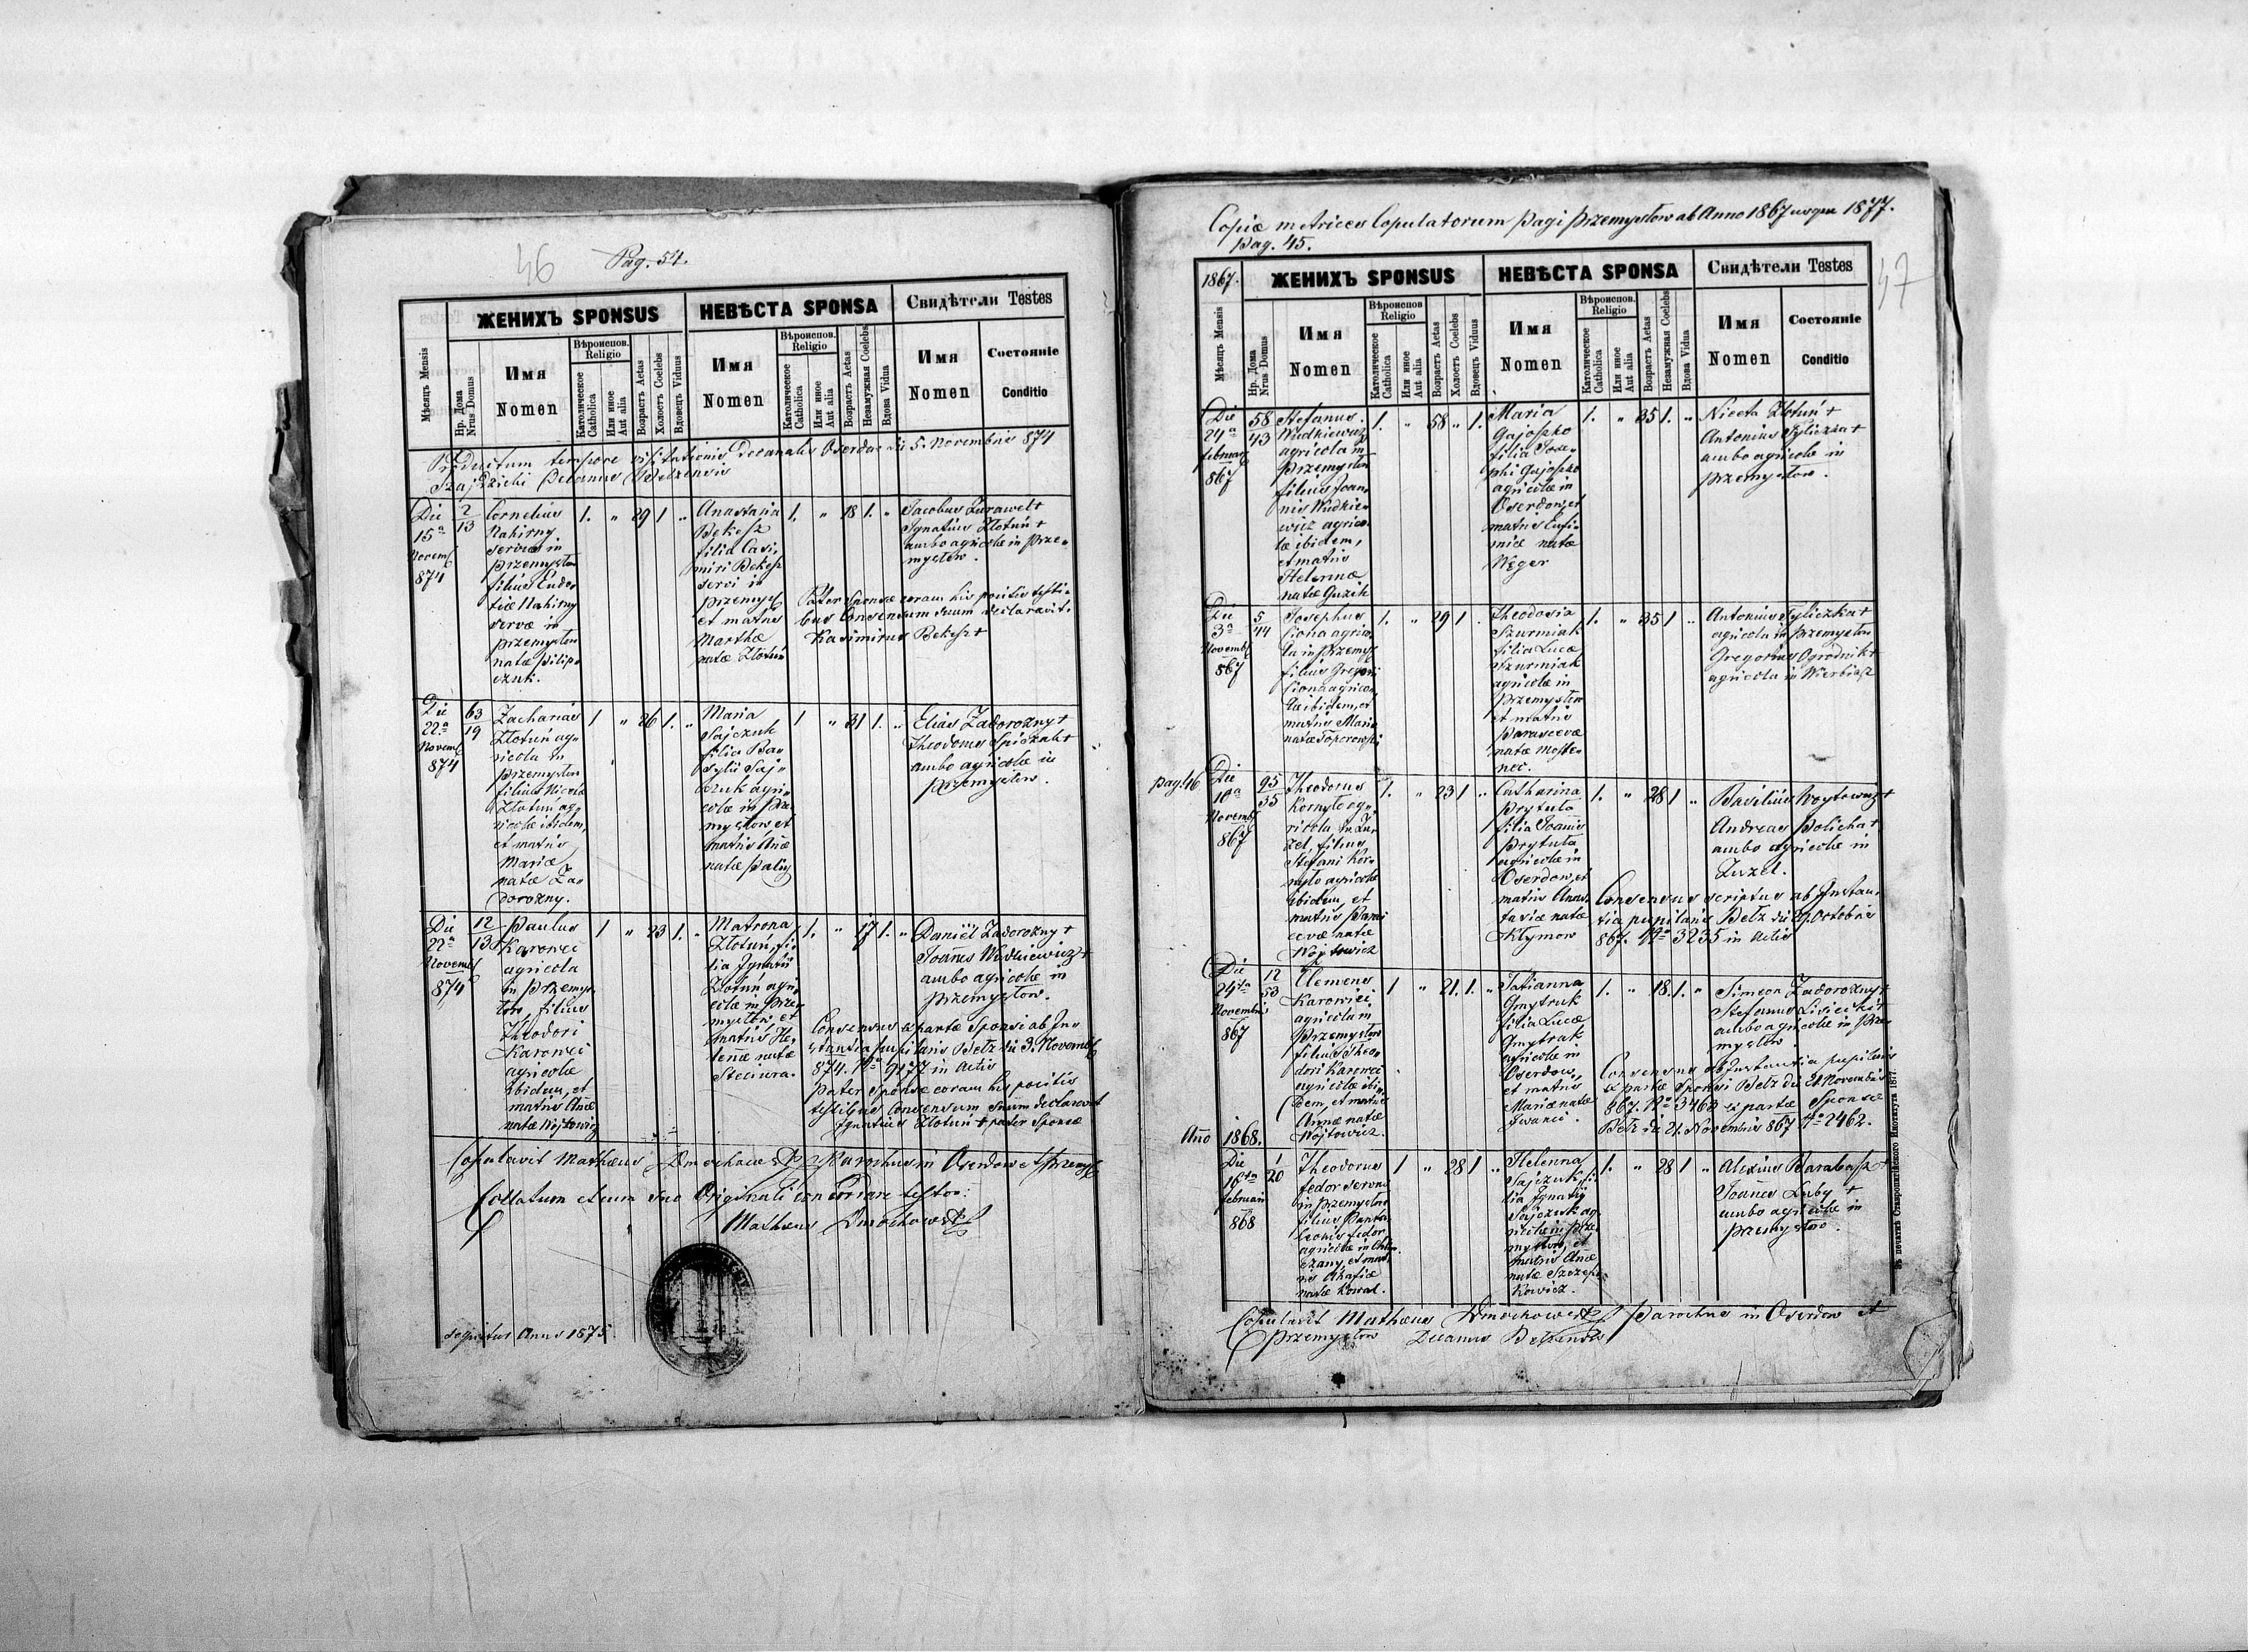 46
Pag. 54.
ЖЕНИХЪ SPONSUS
НЕВѢСТА SPONSA
Свидѣтели Testes
Мѣсяцъ Mensis
Нр. Дома
Nrus Domus
Имя
Nomen
Вѣроиспов.
Religio
Католическое
Catholica
Или иное
Aut alia
Возрастъ Aetas
Холостъ Coelebs
Вдовецъ Viduus
Имя
Nomen
Вѣроиспов.
Religio
Католическое
Catholica
Или иное
Aut alia
Возрастъ Aetas
Незамужная Coelebs
Вдова Vidua
Имя
Nomen
Состоянie
Conditio
Productum tempore visitationis decanalis Oserdow di 5. Novembris 874
Decanus Belzensis
Die
15ª
Novemb
874
2
13
Cornelius
Nahirny
servus in
Przemysłow
filius Eudo
xiæ Nahirny
servæ in
Przemysłow
natæ Pilip
czuk.
1. " 29 1 "
Anastasia
Bekesz
filia Casi
miri Bekesz
servi in
Przemysł
et matris
Marthæ
natæ Złotuń
1. " 18 1. "
Jacobus Zurawel +
Ignatius Złotuń +
ambo agricolæ in Prze
mysłow.
Pater Sponsæ coram his positis testi
bus Consensum suum declaravit.
Kasimirus Bekesz +
Die
22ª
Novemb
874
63
19
Zacharias
Złotuń ag
ricola in
Przemysłow
filius Nicetæ
Złotuń ag
ricolæ ibidem,
et matris
Mariæ
natæ Za
dorozny.
1 " 26 1. "
Maria
Sajczuk
filia Ba
sylii Saj
czuk agri
colæ in Prze
mysłow et
matris Annæ
natæ Paluj
1 " 31 1. "
Elias Zadorozny +
Theodorus Spiczak +
ambo agricolæ in
Przemysłow.
Die
22ª
Novemb
874
12
13
Paulus
Karowci
agricola
in Przemys
łow, filius
Theodori
Karowci
agricolæ
ibidem, et
matris Annæ
natæ Wojtowicz
1 " 23 1. "
Matrona
Złotuń, fi
lia Ignatii
Złotuń agri
colæ in Prze
mysłow, et
matris He
lenæ natæ
Steciura.
1. " 17 1. "
Daniel Zadorozny +
Joannes Wudkiewicz +
ambo agricolæ in
Przemysłow.
Consensus ex parte Sponsi ab Ins
stantia pupilaris Belz di 3. Novemb
874. Nº 9177 in Actis
Pater Sponsæ coram his positis
testibus Consensum suum declaravit
Ignatius Złotuń + pater Sponsæ
Copulavit Mathæus Dmochowski Parochus in Oserdow et Przemysł
Collatum et cum suo Originali concordare testor:
Mathæus Dmochowski
sequitur Annus 1875.
Copiæ metrices Copulatorum pagi Przemysłow ab Anno 1867 usque 1877.
pag. 45.
47
1867.
ЖЕНИХЪ SPONSUS
НЕВѢСТА SPONSA
Свидѣтели Testes
Мѣсяцъ Mensis
Нр. Дома
Nrus Domus
Имя
Nomen
Вѣроиспов.
Religio
Католическое
Catholica
Или иное
Aut alia
Возрастъ Aetas
Холостъ Coelebs
Вдовецъ Viduus
Имя
Nomen
Вѣроиспов.
Religio
Католическое
Catholica
Или иное
Aut alia
Возрастъ Aetas
Незамужная Coelebs
Вдова Vidua
Имя
Nomen
Состоянie
Conditio
Die
24ª
februar
867
58
43
Stefanus
Wudkiewicz
agricola in
Przemysłow
filius Joan
nis Wudkie
wicz agrico
læ ibidem,
et matris
Helennæ
natæ Guzik
1. " 58 " 1.
Maria
Gajoszko
filia Jose
phi Gajoszko
agricolæ in
Oserdow, et
matris Eufi
miæ natæ
Węger
1. " 35 1. "
Niceta Złotuń +
Antonius Tyliczka +
ambo agricolæ in
Przemysłow.
Die
3ª
Novemb
867
5
44
Josephus
Ciona agrico
la in Przemysł
filius Gregorii
Ciona agrico
læ ibidem, et
matris Mariæ
natæ Toporowski
1. " 29 1 .
Theodosia
Szurmiak
filia Lucæ
Szurmiak
agricolæ in
Przemysłow
et matris
Parascevæ
natæ Moste
nec.
1. " 35 1 "
Antonius Tyliczka +
agricola in Przemysłow
Gregorius Ogrodnik +
agricola in Wierbiąż
pag. 46
Die
10ª
Novemb
867
95
35
Theodorus
Kornyło ag
ricola in Zu
zel, filius
Stefani Kor
nyło agricolæ
ibidem, et
matris Paras
cevæ natæ
Wojtowicz
1. " 23 1 "
Catharina
Prytuła
filia Joannis
Prytuła
agricolæ in
Oserdow, et
matris Anas
tasiæ natæ
Kłymow
1. " 28 1 "
Basilius Woytowicz +
Andreas Policha +
ambo agricolæ in
Zuzel.
Consensus scriptus ab Instan
tia pupilaris Belz di 27. Octobris
867. Nº 3235 in Actis
Die
24ta
Novembris
867
12
53
Clemens
Karowci
agricola in
Przemysłow
filius Theo
dori Karowci
agricolæ ibi
dem, et matris
Annæ natæ
Wojtowicz.
1 " 21. 1. "
Tatianna
Gmytruk
filia Lucæ
Gmytruk
agricolæ in
Oserdow,
et matris
Mariæ natæ
Iwanci.
1. " 18. 1. "
Simeon Zadorozny +
Stefanus Lisiecki +
ambo agricolæ in Prze
mysłow.
Consensus ab Instantia pupilaris
ex parte Sponsi Belz di 21 Novembris
867. Nº 3463 ex parte Sponsæ
Belz di 21. Novembris 867 Nº 2462.
Año 1868.
Die
16ta
februarii
868
1
20
Theodorus
fedor servus
in Przemysłow
filius Panta
leonis fedor
agricolæ in Chło
czany, et mat
ris Akafiæ
natæ Kowal.
1 " 28 1 "
Helenna
Sajczuk fi
lia Ignatii
Sajczuk ag
ricolæ in Prze
mysłow, et
matris Annæ
natæ Szczepa
kowicz.
1. " 28 1 "
Alexius Barabasz +
Joannes Luby +
ambo agricolæ in
Przemysłow.
Copulavit Mathæus Dmochowski Parochus in Oserdow et
Przemysłow Decanus Belzensis
въ печатнѣ Ставропигійского Института 1877.